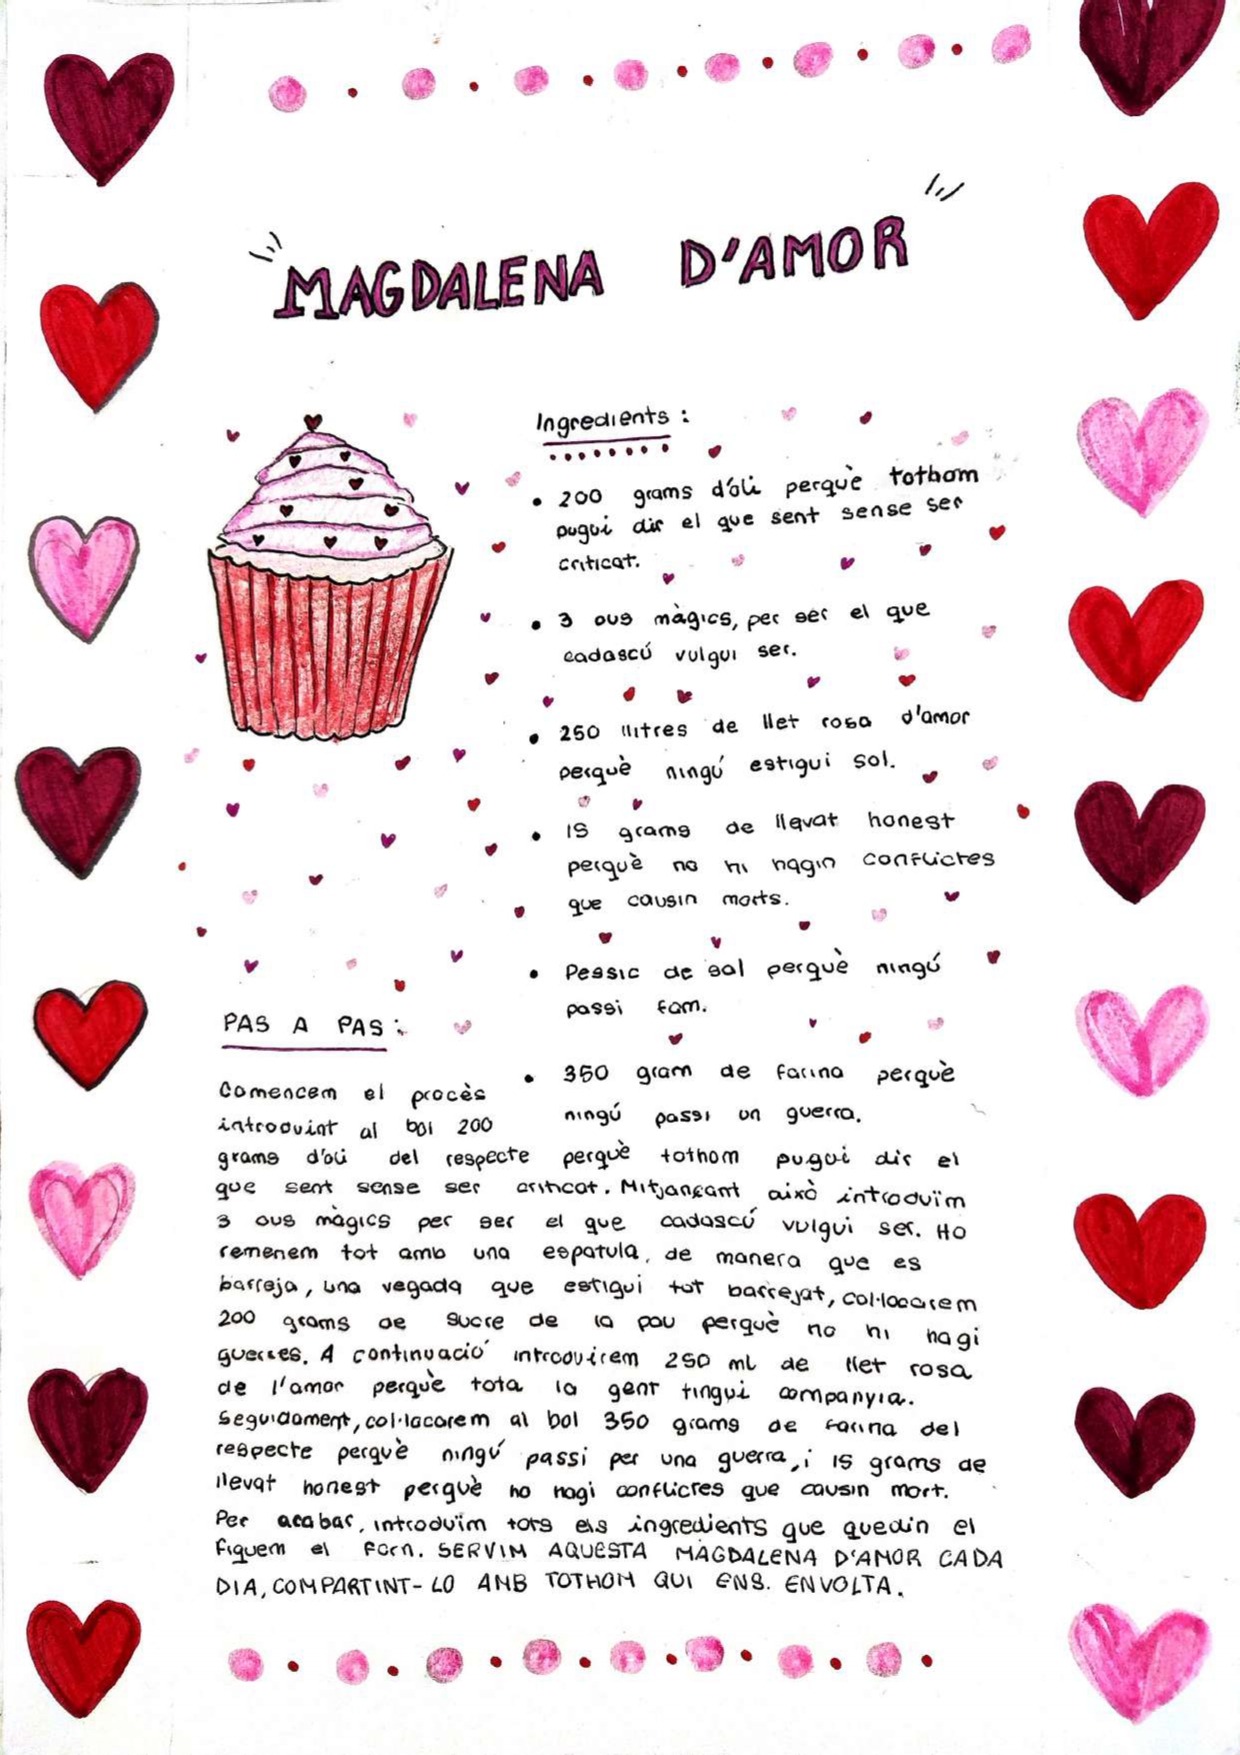 MAGDALENA D'AMOR
Ingredients:
• 200 grams d'oli perquè tothom
pugui dir el que sent sense ser
criticat.
• 3 ous màgics, per ser el que
cadascú vulgui ser.
• 250 llitres de llet rosa d'amor
perquè ningú estigui sol.
• 15 grams de llevat honest
perquè no hi hagin conflictes
que causin morts.
• Pessic de sal perquè ningú
passi fam.
• 350 gram de farina perquè
ningú passi un guerra.
PAS A PAS:
Comencem el procès
introduint al bol 200
grams d'oli del respecte perquè tothom pugui dir el
que sent sense ser criticat. Mitjançant això introduïm
3 ous màgics per ser el que cadascú vulgui ser. Ho
remenem tot amb una espatula, de manera que es
barreja, una vegada que estigui tot barrejat, col·locarem
200 grams de sucre de la pau perquè no hi hagi
guerres. A continuació introduirem 250 ml de llet rosa
de l'amor perquè tota la gent tingui companyia.
Seguidament, col·locarem al bol 350 grams de farina del
respecte perquè ningú passi per una guerra, i 15 grams de
llevat honest perquè no hagi conflictes que causin mort.
Per acabar, introduïm tots els ingredients que quedin el
fiquem el forn. SERVIM AQUESTA MAGDALENA D'AMOR CADA
DIA, COMPARTINT-LO AMB TOTHOM QUI ENS. ENVOLTA.